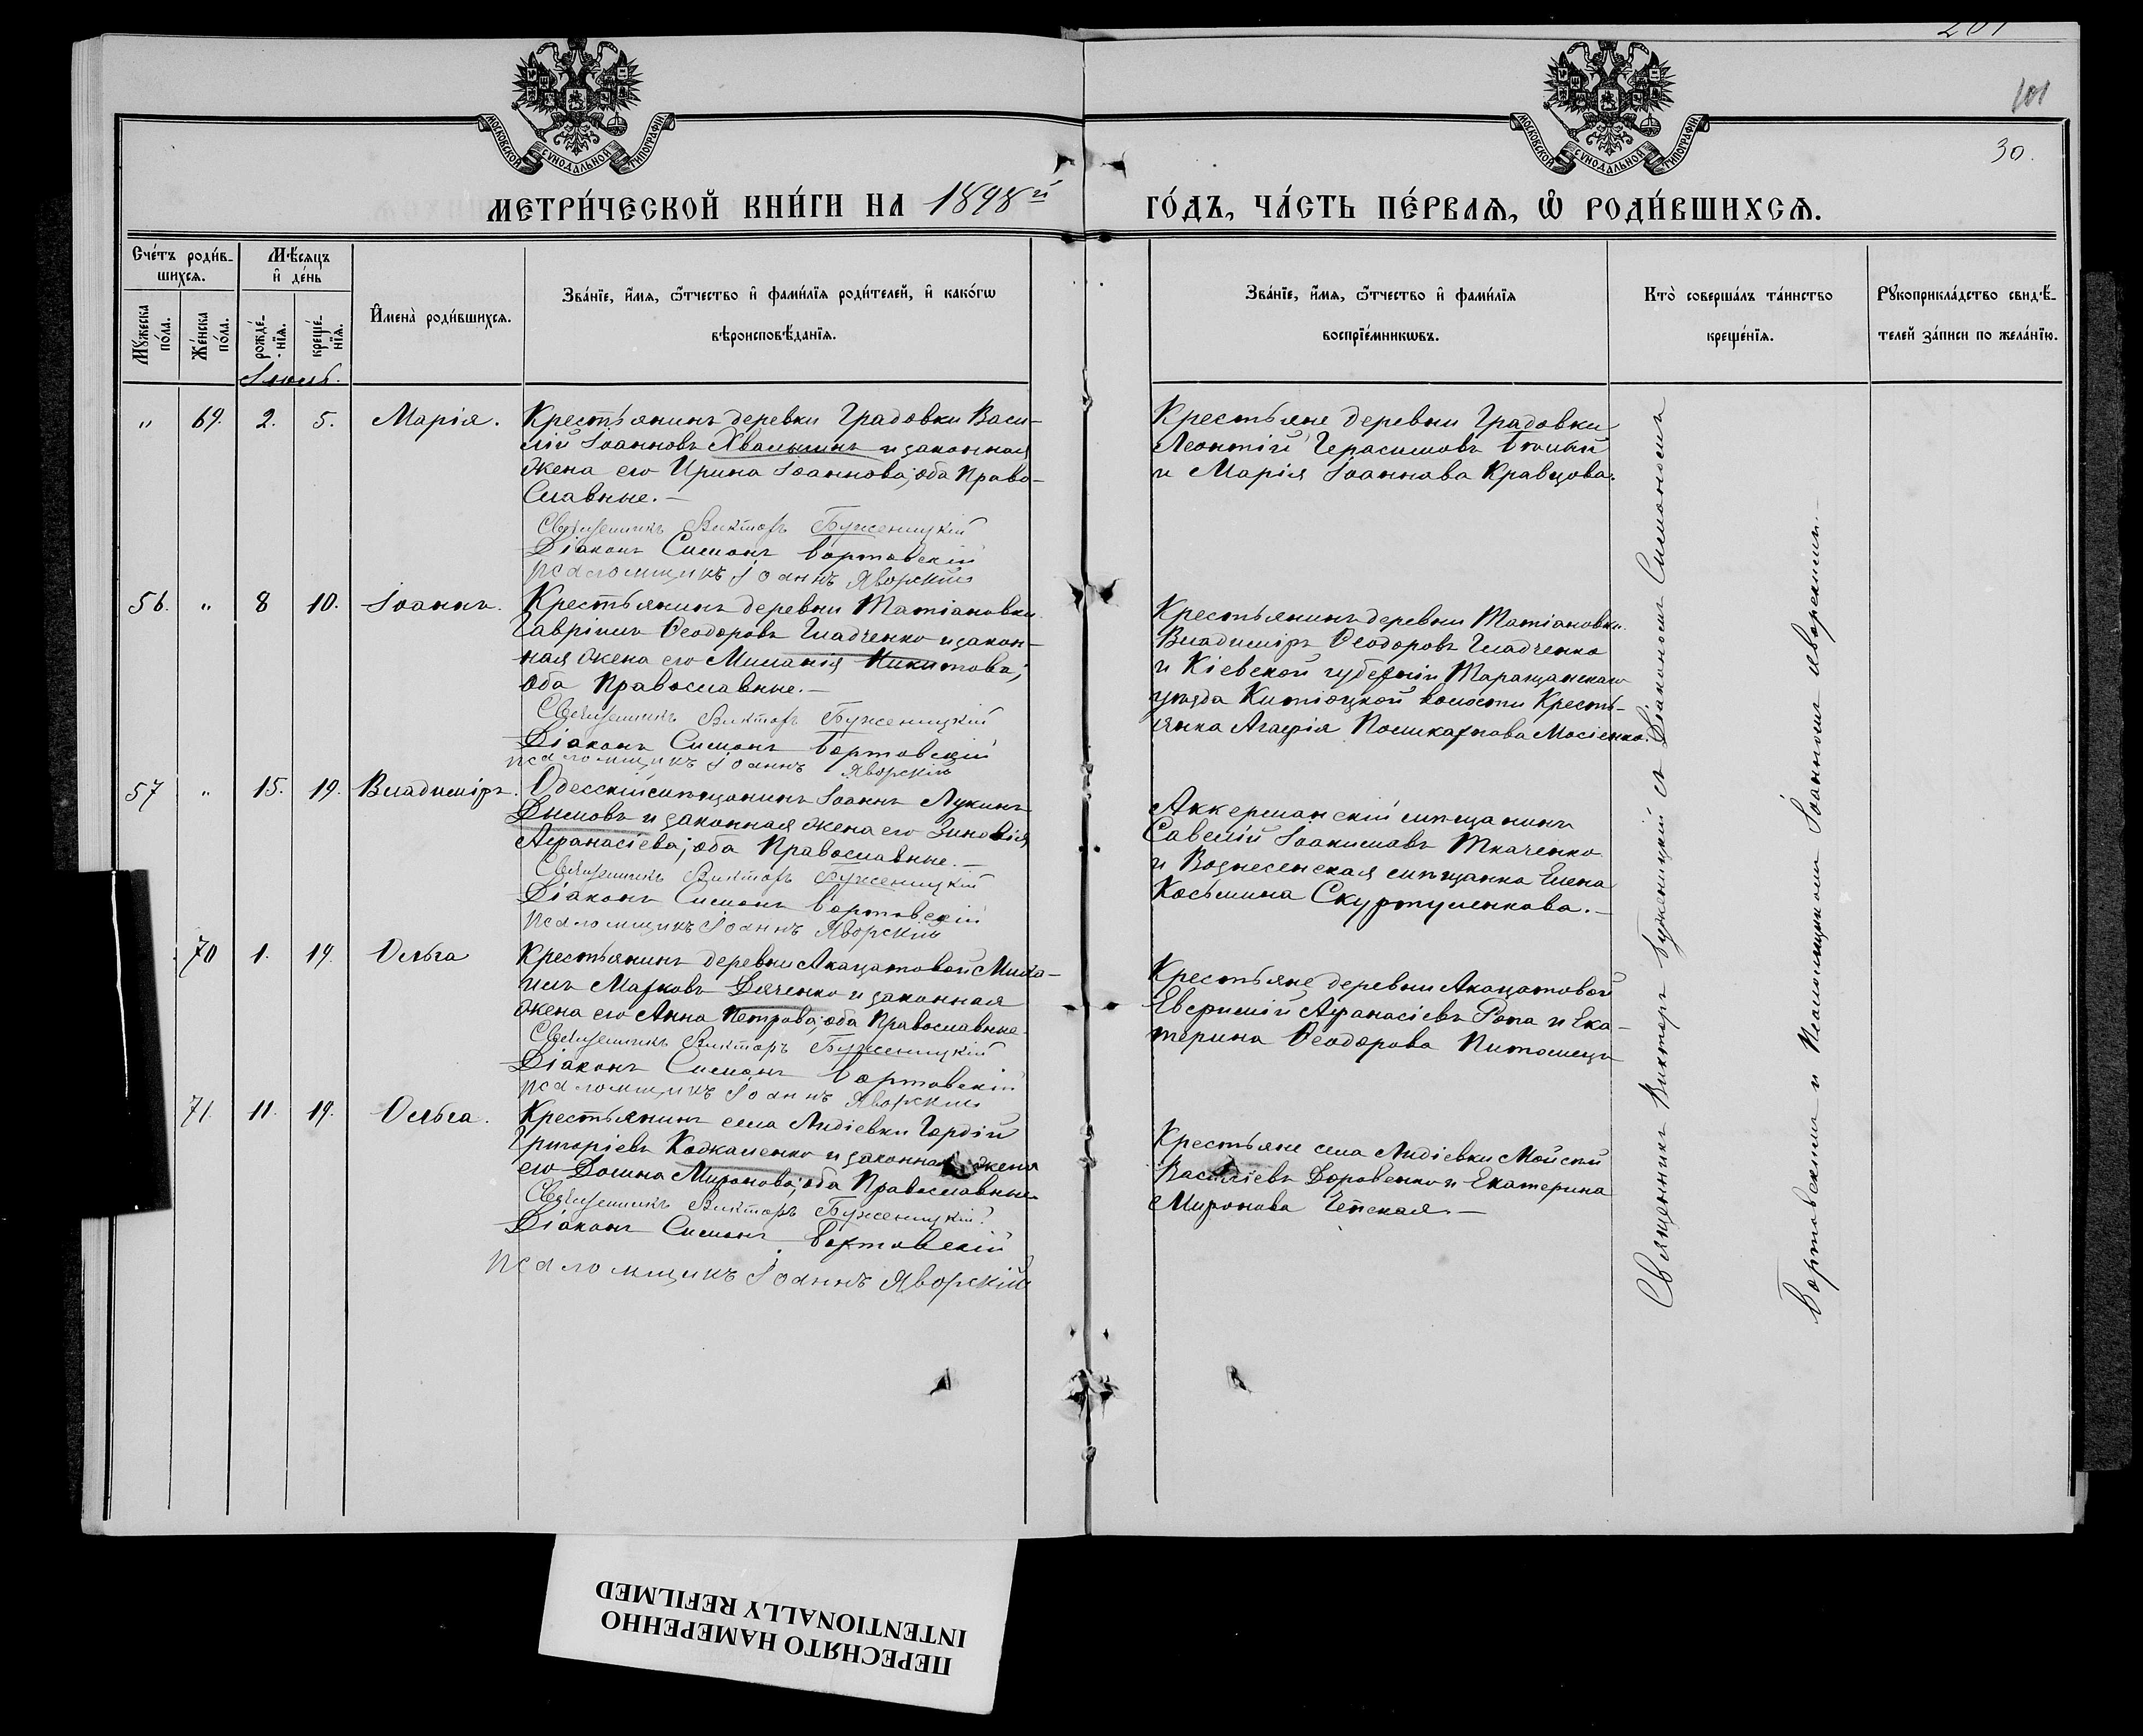 201
101
30.
МОСКОВСКОЙ СѴНОДАЛЬНОЙ ТИПОГРАФІИ
МОСКОВСКОЙ СѴНОДАЛЬНОЙ ТИПОГРАФІИ
МЕТРИ́ЧЕСКОЙ КНИ́ГИ НА 1898й
ГО́ДЪ, ЧА́СТЬ ПЕ́РВАѦ, Ѽ РОДИ́ВШИХСѦ.
Сче́тъ роди́в-
шихсѧ.
Мѣ́сѧцъ
и҆ де́нь
Мꙋ́жеска по́ла.
Же́нска по́ла.
рожде́-нїѧ.
креще́-нїѧ.
И҆мена̀ роди́вшихсѧ.
Зва́нїе, и҆́мѧ, ѻ҆́тчество и҆ фами́лїѧ роди́телей, и҆ како́гѡ
вѣроисповѣ́данїѧ.
Зва́нїе, и҆́мѧ, ѻ҆́тчество и҆ фами́лїѧ
воспрїе́мникѡвъ.
Кто̀ соверша́лъ та́инство
креще́нїѧ.
Рꙋкоприкла́дство свидѣ́-
телей за́писи по жела́нїю.
Іюль.
" 69. 2. 5. Марія.
Крестьянинъ деревки Градовки Васи-
лій Іоанновъ Хвалынинъ и законная
жена его Ирина Іоаннова; оба Право-
славные.—
Священникъ Викторъ Буженицкій
Діаконъ Симонъ Бортовскій
псаломщикъ Іоаннъ Яворскій
Крестьяне деревни Градовки
Леонтій Герасимовъ
и Марія Іоаннова Кравцова.
56. " 8 10. Іоаннъ.
Крестьянинъ деревни Татіановки
Гавріилъ Ѳеодоровъ Гладченко и закон-
ная жена его Миланія Никитова;
оба Православные.—
Священникъ Викторъ Буженицкій
Діаконъ Симонъ Бортовскій
псаломщикъ Іоаннъ Яворскій
Крестьянинъ деревни Татіановки
Владиміръ Ѳеодоровъ Гладченко
и Кіевской губерніи Таращанскаго
уѣзда волости Кресть-
янка Агафія Поликарпова Мосіенко.
57 " 15. 19. Владиміръ.
Одесскій мѣщанинъ Іоаннъ Лукинъ
Дымовъ и законная жена его Зиновія
Аѳанасіева; оба Православные.—
Священникъ Викторъ Буженицкій
Діаконъ Симонъ Бортовскій
псаломщикъ Іоаннъ Яворскій
Аккерманскій мѣщанинъ
Савелій Іоакимовъ Ткаченко
и Вознесенская мѣщанка Елена
Косьмина Скуртуленкова.—
70 1. 19. Ольга
Крестьянинъ деревни Акацатовой Миха-
илъ Марковъ Дяченко и законная
жена его Анна Петрова; оба Православные
Священникъ Викторъ Буженицкій
Діаконъ Симонъ Бортовскій
псаломщикъ Іоаннъ Яворскій
Крестьяне деревни Акацатовой
Евфимій Аѳанасіевъ Ропа и Ека-
терина Ѳеодорова
71. 11. 19. Ольга.
Крестьянинъ села Лидіевки Гордій
Григоріевъ Кодкаленко и законная жена
его Домна Миронова; оба Православные
Священникъ Викторъ Буженицкій
Діаконъ Симонъ Бортовскій
псаломщикъ Іоаннъ Яворскій
Крестьяне села Лидіевки Мойсей
Василіевъ Доровенко и Екатерина
Миронова
Священникъ Викторъ Буженицкій съ Діакономъ Симономъ
Бортовскимъ и Псаломщикомъ Іоанномъ Яворскимъ.—
ПЕРЕСНЯТО НАМЕРЕННО
INTENTIONALLY REFILMED